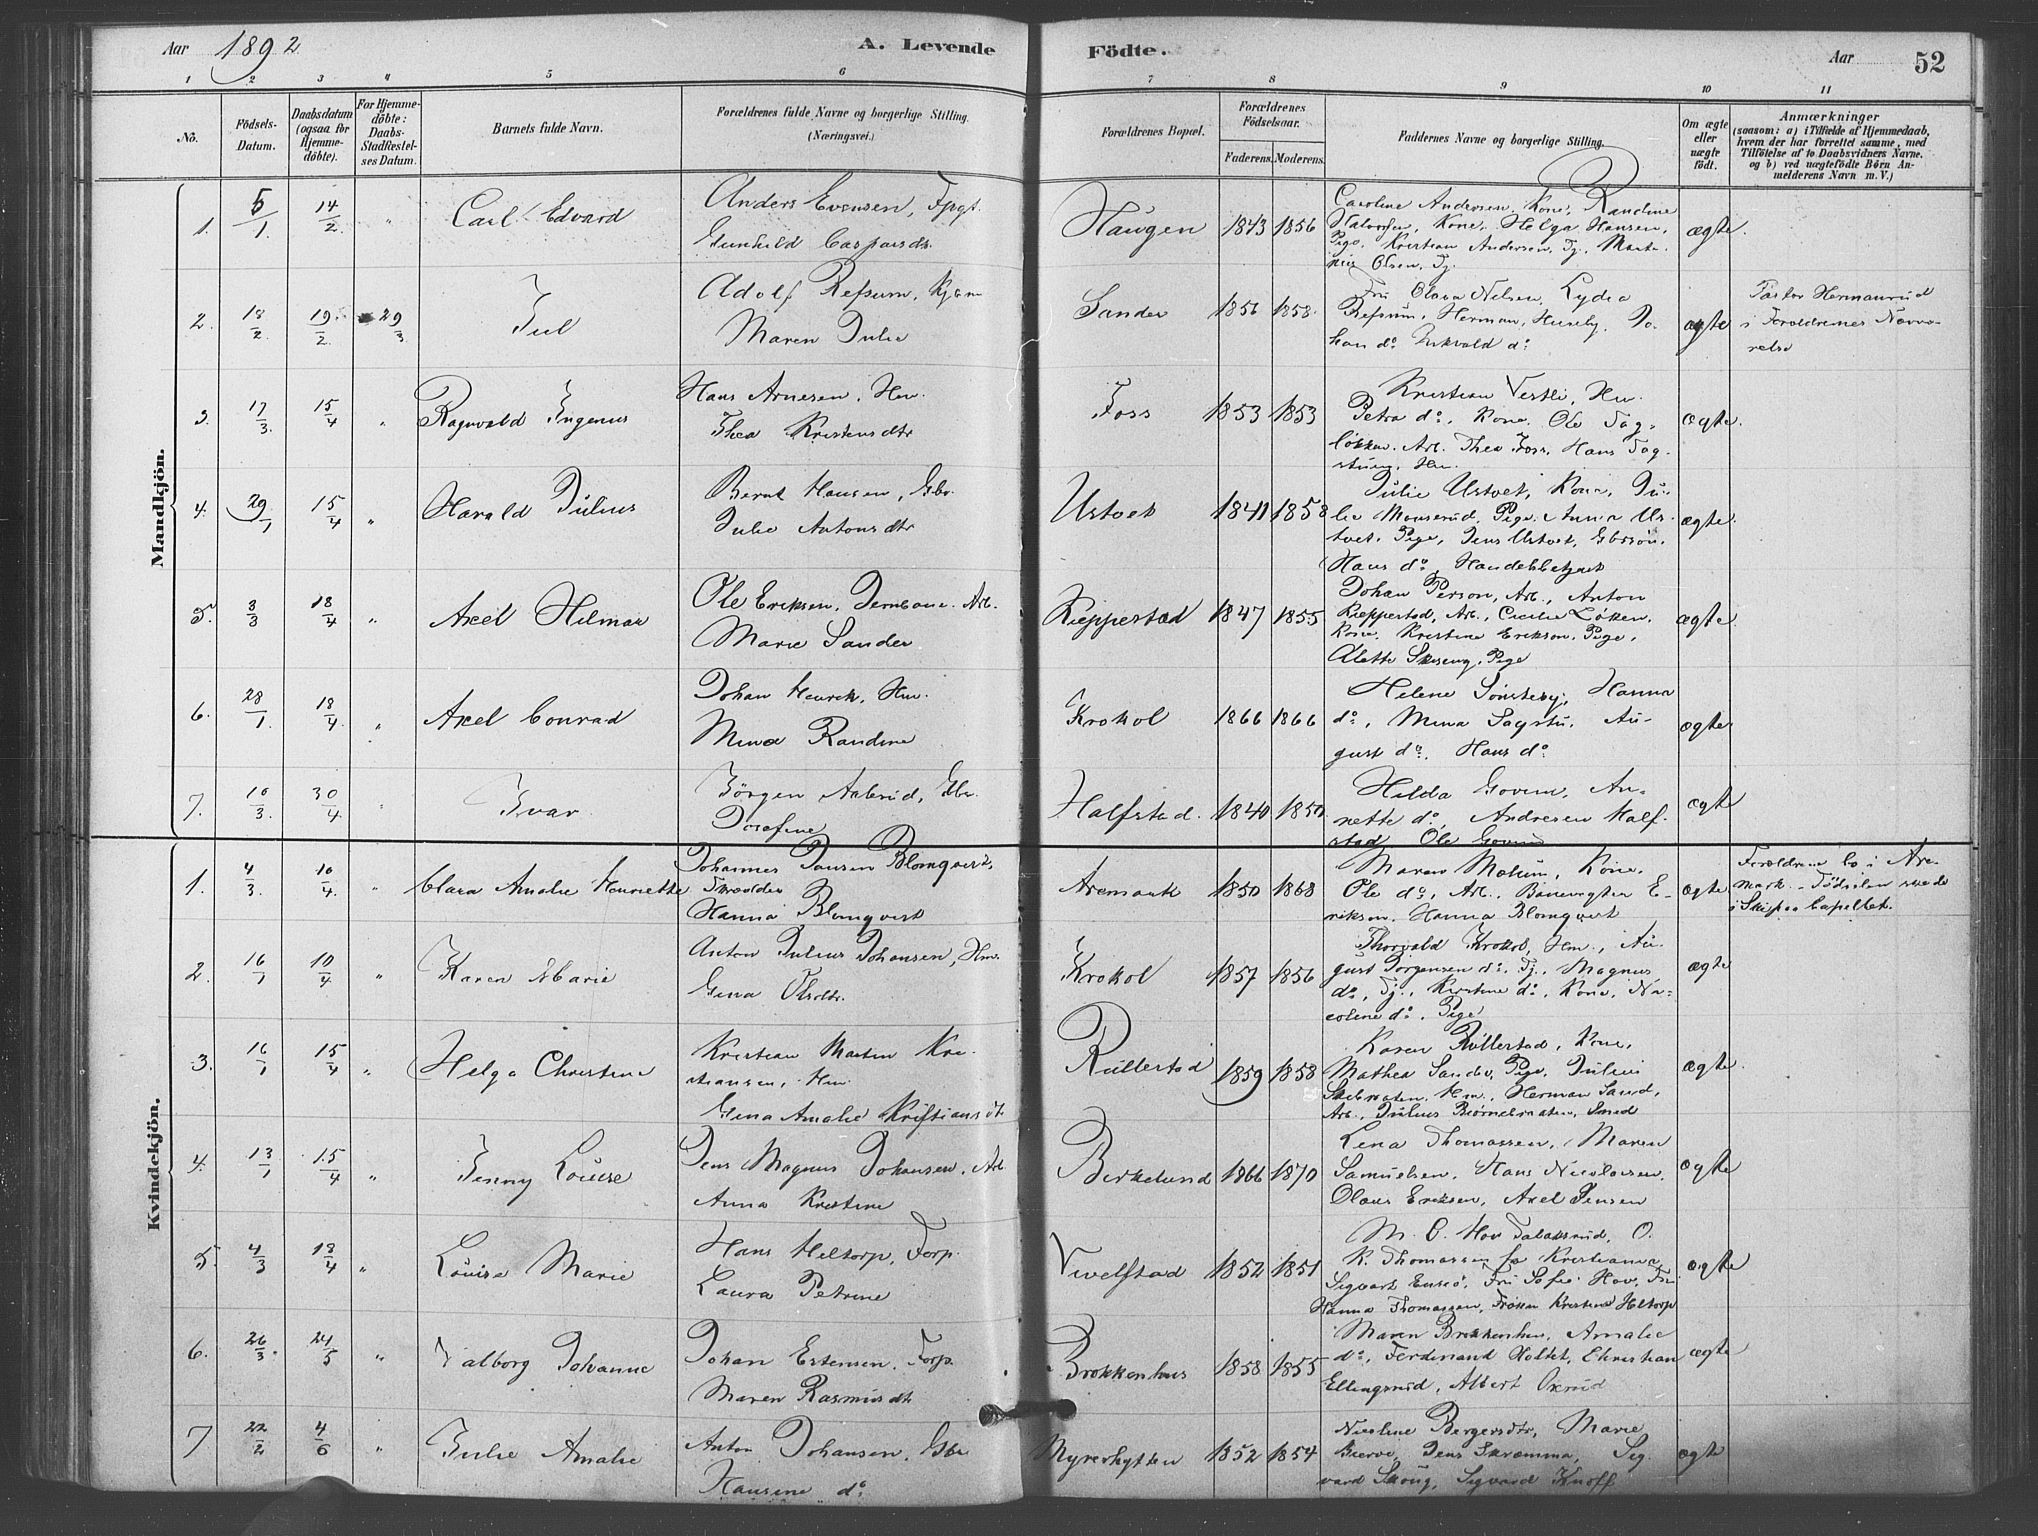 Aar 1892 A. Levende Födte. Aar 52
1 2 3 " 5 6 7 8 9 10 11
No.
Födsels-Datum.
Daabsdatum (ogsaa for Hjemme-döbte).
For Hjemme-döbte: Daabs-Stadfæstel-ses Datum.
Barnets fulde Navn.
Forældrenes fulde Navne og borgerlige Stilling. (Næringsvei.)
Forældrenes Bopæl.
Forældrenes Födselsaar.
Faderens. Moderens.
Faddernes Navne og borgerlige Stilling.
Om ægte eller uægte födt.
Anmærkninger (saasom: a) i Tilfælde af Hjemmedaab, hvem der har forrettet samme, med Tilföielse af to Daabsvidners Navne, og b) ved uægtefödte Börn An-melderens Navn m. V.)
Mandkjön.
1. 5/1 14/2 " Carl Edvard
Anders Evensen, Fpgt.
Gunhild Caspersdr.
Haugen 1843 1856
Caroline Andersen, Kone, Randine
Halvorsen, Kone, Helga Hansen,
Pige, Kristian Andersen, Tj. Marti-
nius Olsen, Tj.
ægte.
2. 18/2 19/2 29/3 Jul
Adolf Refsum, Kjøm
Maren Julie
Sander 1856 1858.
Fru Olava Nelsen, Lydia
Refsum, Herman Huseby, Jo-
han do
ægte
Pastor Hermanrud
i Forældrenes Nærvæ-
relse
3. 17/3 15/4 " Ragnvald Ingenus
Hans Arnesen, Hm.
Thea Kristensdtr
Foss 1853 1853
Kristian Vestli, Hm.
Petra do, Kone. Ole Fag-
løkken. Arb. Thea Foss, Hans Fag-
stuen, Hm.
ægte.
4. 29/1 15/4 " Harald Julius
Bernt Hansen, Gbr.
Julie Antonsdtr
Ustvet 1841 1858
Julie Ustvet, Kone, Ju-
lie Monserud, Pige. Anna Us-
tvet. Pige, Jens Ustvet, Gbrsøn.
Hans do, Handelsbetjent
ægte.
5. 3/3 18/4 " Axel Hilmar
Ole Eriksen, Jernbane. Arb.
Marie Sander
Kieppestad 1847 1855
Johan Person, Arb., Anton
Kieppestad, Arb., Cecilie Løken,
Kone. Kristine Erikson, Pige,
Alette Skiseng, Pige
ægte.
6. 28/1 18/4 " Axel Conrad
Johan Henrek, Hm.
Mina Randine
Krokol 1866 1866
Helene Sønsteby, Hanna
do, Mina Sagstu, Au-
gust do, Hans do
ægte
7. 10/3 30/4 " Ivar
Jørgen Aaberud, Gbr.
Josefine
Halfstad. 1840 1850
Hilda Govim, An-
nette do, Andresen Half-
stad Ole Govim
ægte
Kvindekjön.
1. 4/3 10/4 " Clara Amalie Henriette
Johannes Jansen Blomqvist,
Skrædder
Hanna Blomqvist
Aremark 1850 1868
Maren Molum, Kone.
Ole do, Arb., Banevogter E-
rikson. Hanna Blomqvist
ægte
Forældrene bo i Are-
mark. Fødselen skede
i Skipaa Capellet.
2. 16/1 10/4 " Karen Marie
Anton Julius Johansen, Hm.
Gina Olsdtr.
Krokol 1857 1856
Thorvald Krokol, Hm., Au-
gust Jørgensen do, Tj., Magnus
do, Tj., Kirstine do, Kone, Ni-
coline do, Pige
ægte
3. 16/1 15/4 " Helga Christine
Kristian Martin Kri-
stiansen, Hm.
Gina Amalie Kristiansdt
Rullestad 1859 1858
Karen Rullestad, Kone,
Mathea Sander, Pige. Julius
Skibnesten, Hm., Herman Sand,
Arb., Julius Bjørnebraaten, Smed
ægte.
4. 13/1 15/4 " Jenny Louise
Jens Magnus Johansen, Arb.
Anna Kristine
Birkelund 1866 1870
Lena Thomassen, Maren
Samuelsen, Hans Nicolaisen,
Olaus Eriksen, Axel Jensen
ægte
5. 4/3 18/4 " Louise Marie
Hans Heltorp, Forp.
Laura Petrine
Vivelstad 1852 1851
M. O. Hov Falaksrud, O.
K. Thomassen fra Kristiania
Sigvart Ensjø, Fru Sofie Hov, Fru
Hanna Thomassen, Frøken Kristine Heltorp
ægte
6. 26/3 24/5 " Valborg Johanne
Johan Estensen, Forp.
Maren Rasmusdtr
Brokkenhus 1858 1855
Maren Brokkenhus, Amalie
do, Ferdinand Holtet, Christian
Ellingsrud, Albert Oxrud
ægte
7. 22/2 4/6 " Julie Amalie
Anton Johansen, Gbr
Hansine do
Myrerhytten 1852 1854
Nicoline Bergersdtr, Marie
Bierve, Jens Skramma, Sig-
vard Skoug, Sigvard Knoff
ægte